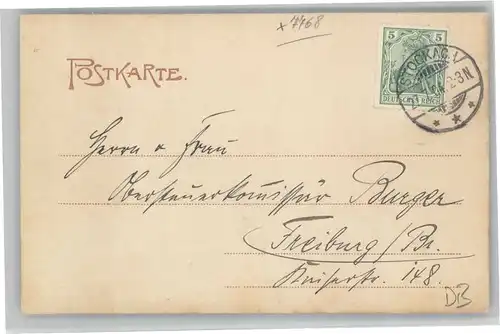 x 7768
POSTKARTE.
5 5
DEUTSCHES REICH
STOCKACH
2-3N
Herrn u Frau
Obersteuerkommissär Burger
Freiburg/Br.
Kaiserstr. 148.
DB